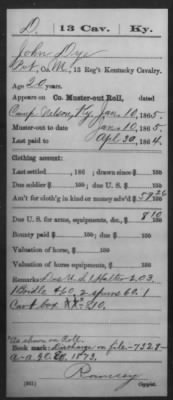 D. | 13 Cav. | Ky.
John Dye
Pvt., Co. M, 13 Reg't Kentucky Cavalry.
Age 20 years.
Appears on Co. Muster-out Roll, dated
Camp Nelson, Ky. Jan. 10, 1865.
Muster-out to date Jan. 10, 1865.
Last paid to Apl. 30, 1864.
Clothing account:
Last settled , 186 ; drawn since $ 100
Due soldier $ 100; due U. S. $ 100
Am't for cloth'g in kind or money adv'd $ 59 26/100
Due U. S. for arms, equipments, &c., $ 8 10/100
Bounty paid $ 100; due $ 100
Valuation of horse, $ 100
Valuation of horse equipments, $ 100
Remarks: Due U. S. 1 Halter 2.03.
1 Bridle 2 spurs 60. 1
Cart box
*As shown on Roll.
Book mark: Discharge on file-7328-
1873.
(361) Copyist.